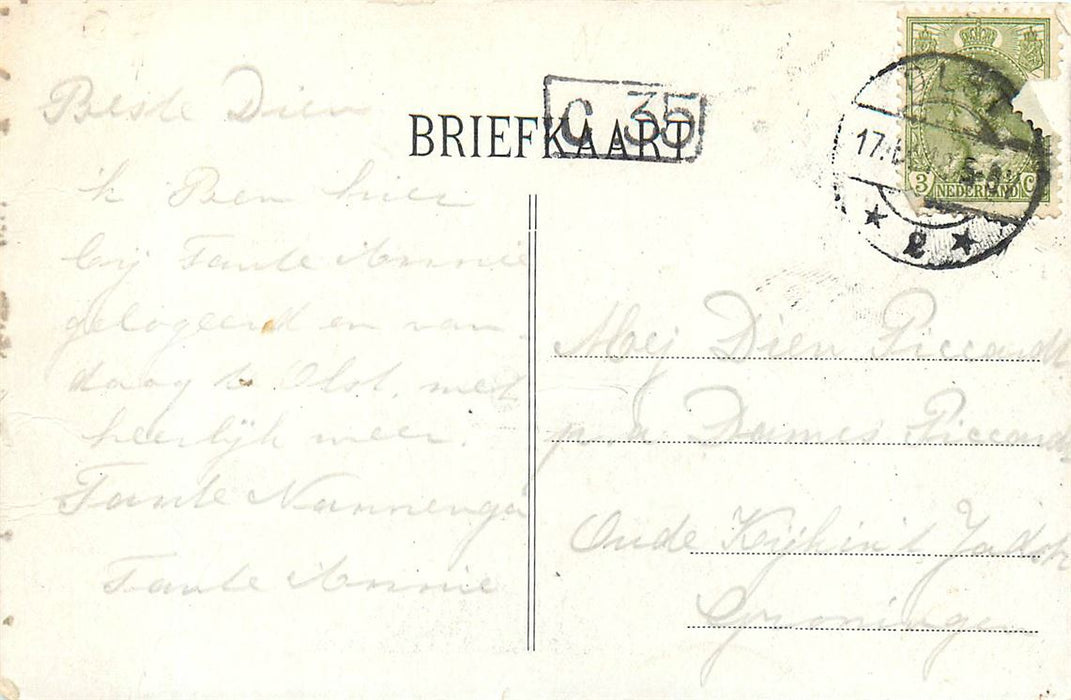 BRIEFKAART
C 35
OLST
17.
5-
2
3 C
NEDERLAND
Beste Dien
ik Ben hier
bij Tante Annie
gelogeerd en van
daag te Olst. met
heerlijk weer.
Tante Nannenga
Tante Annie
Mej Dien Piccardt
p.a Dames Piccardt
Oude Kijk in 't Jadstr
Groningen